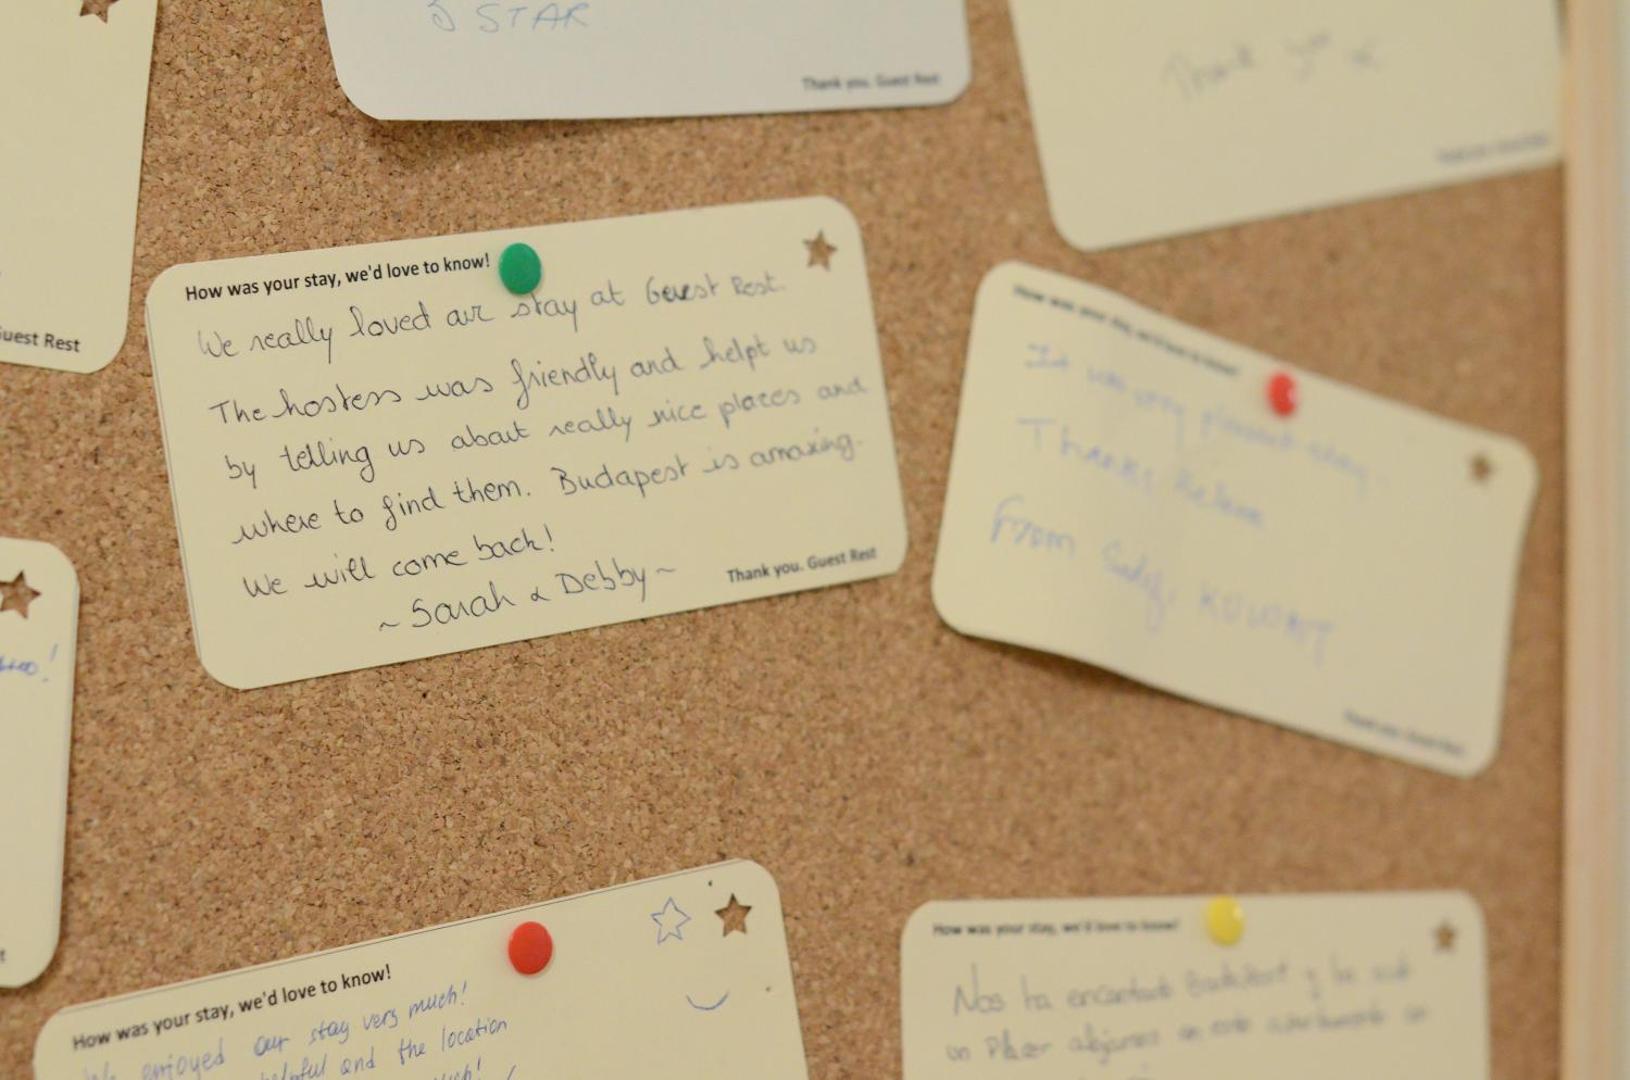 5 STAR
Thank you. Guest Rest
Thank you
Guest Rest
How was your stay, we'd love to know!
We really loved our stay at Guest Rest.
The hostess was friendly and helpt us
by telling us about really nice places and
where to find them. Budapest is amazing.
We will come back!
~ Sarah & Debby ~
Thank you. Guest Rest
How was your stay, we'd love to know!
It was very pleasant stay.
Thanks
From KUWAIT
Thank you. Guest Rest
How was your stay, we'd love to know!
We enjoyed our stay very much!
helpful and the location
How was your stay, we'd love to know!
Nos ha encantado Budapest y ha sido
un placer alojarnos en este apartamento